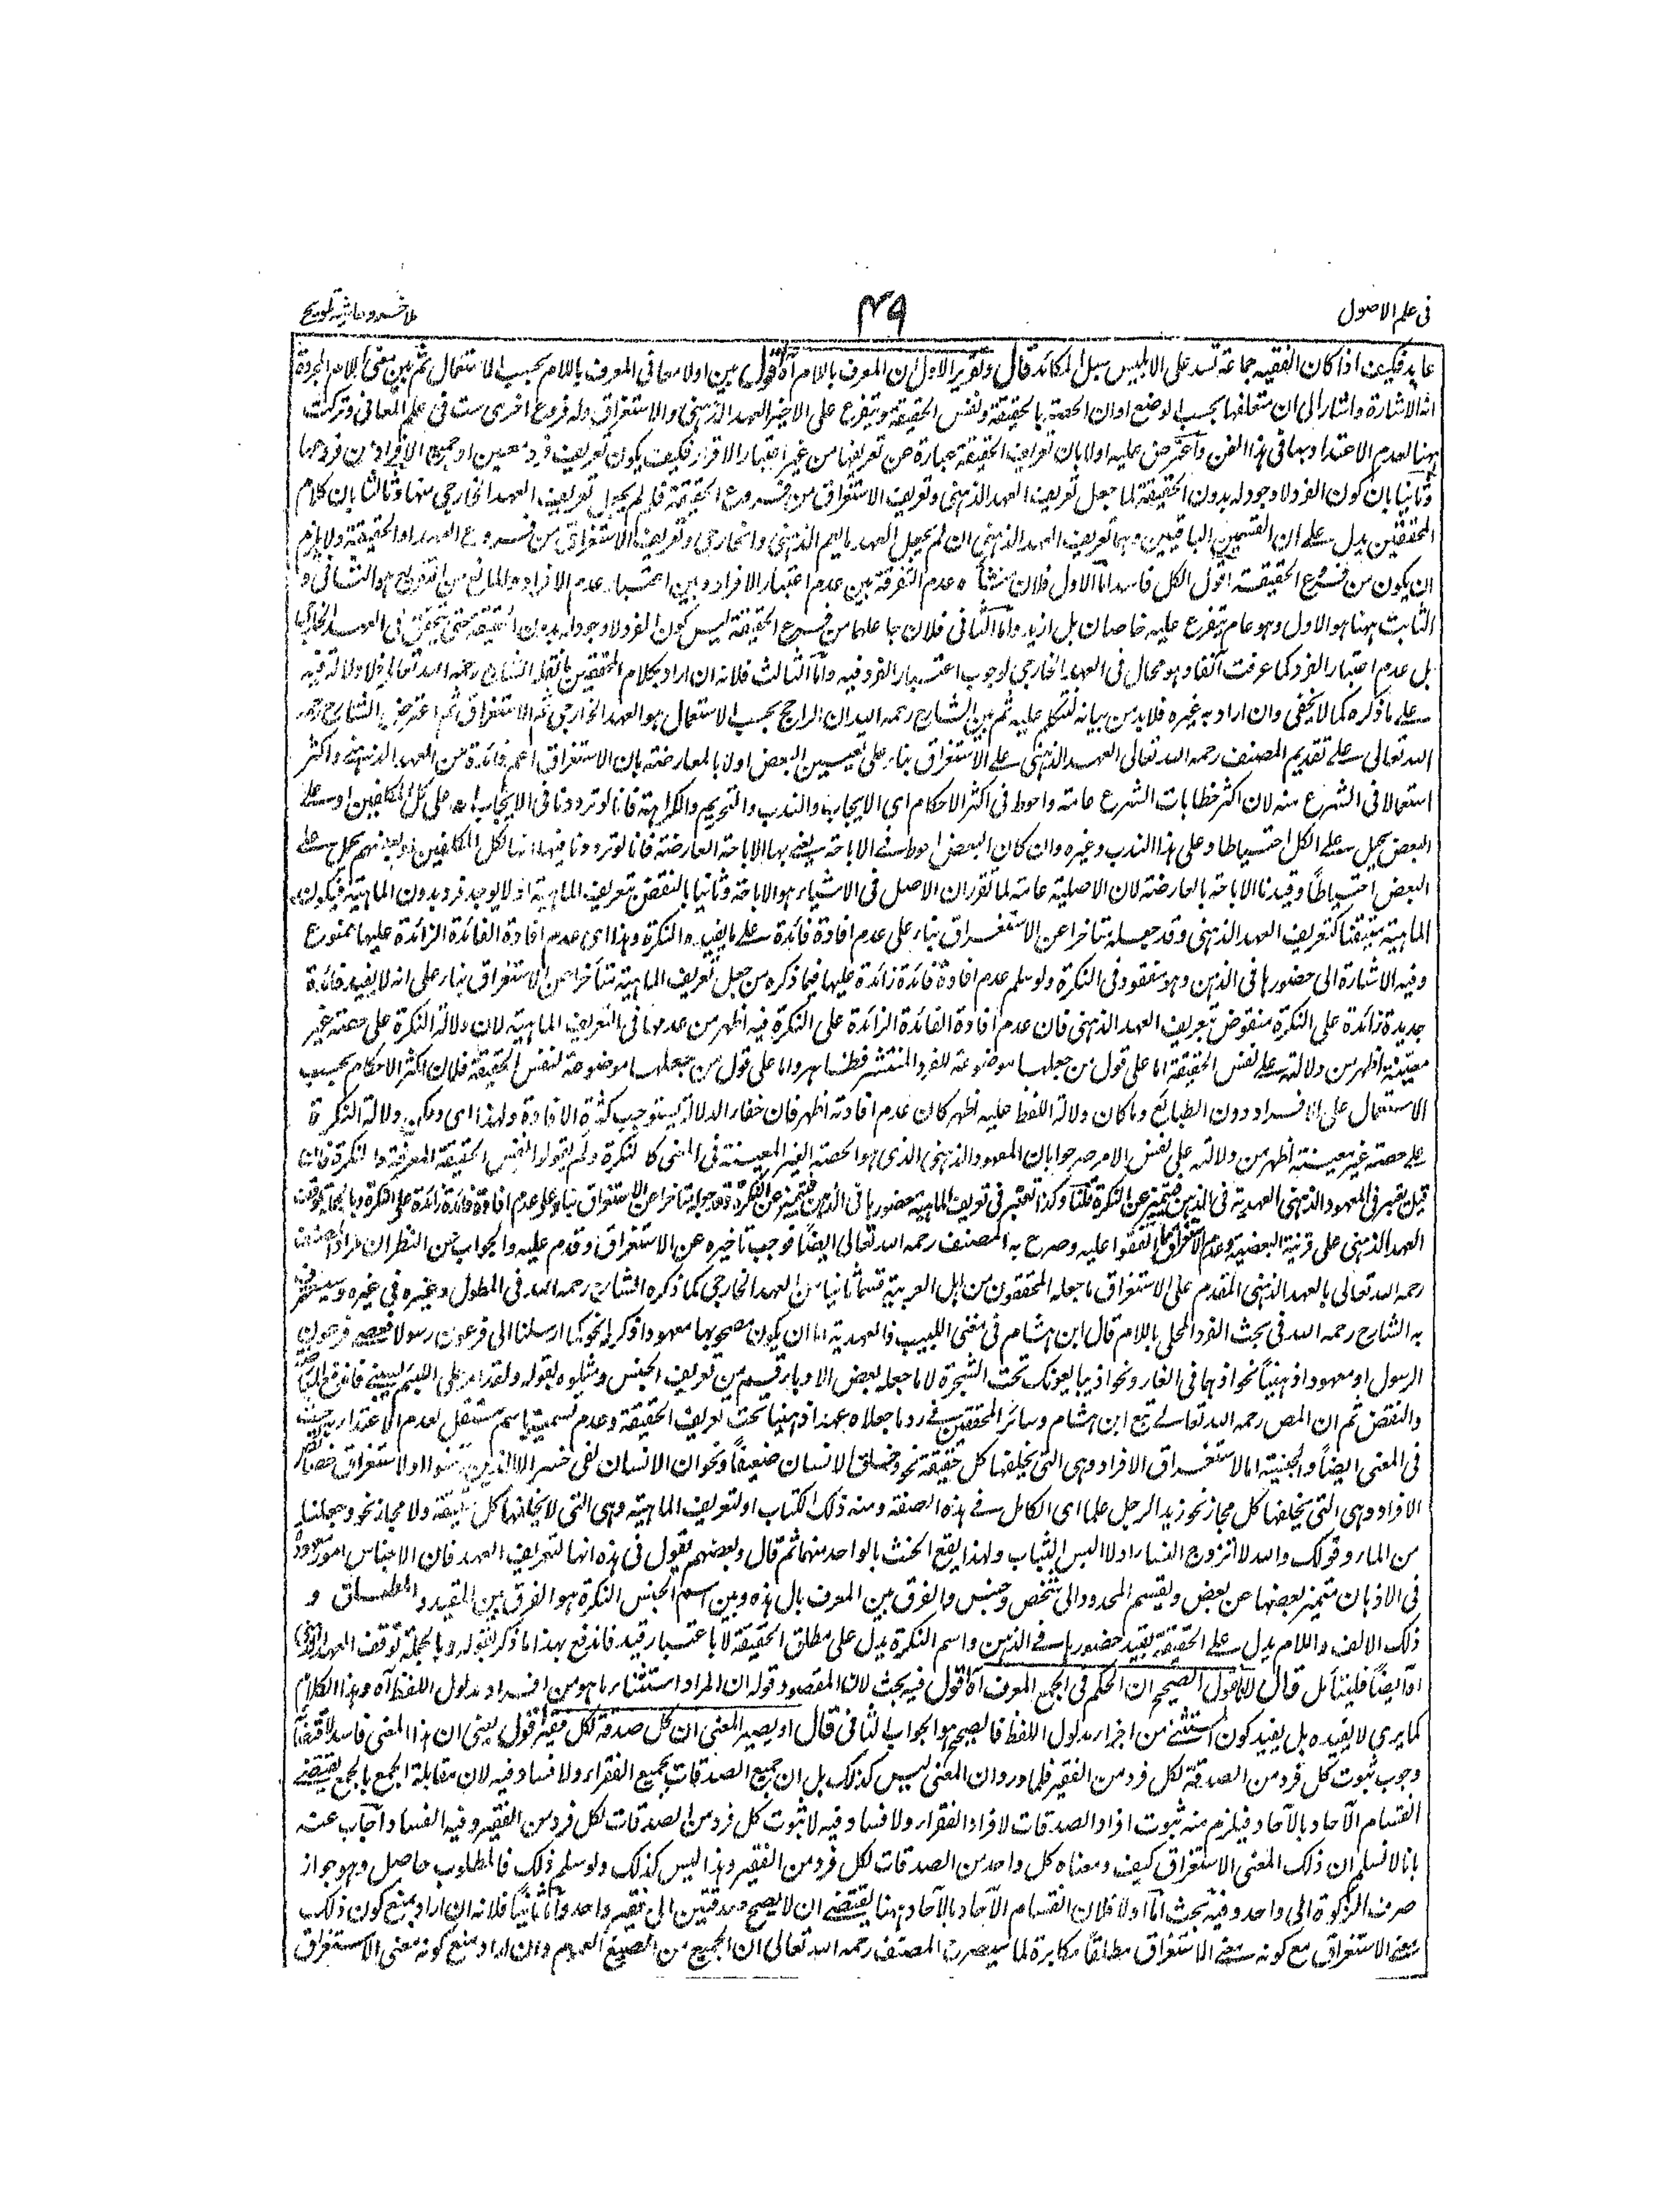 فى علم الاصول
٤٩
ملا خسرو حاشية تلويح
عابد فكيف اذا كان الفقيه جماعة تسد على الابليس سبل المكائد قال وتقرير الاول ان المعرف باللام آه اقول بين اولا معانى المعرف باللام بحسب الاستعمال ثم بين معنى اللام المجردة
انه الاشارة واشار الى ان متعلقها بحسب الوضع اوان الحصة بالحقيقة ونفس الحقيقة ويتفرع على الاخير العهد الذهنى والاستغراق وله فروع اخرى ست فى علم المعانى وتركت
ههنا لعدم الاعتداد بها فى هذا الفن واعترض عليه اولا بان تعريف الحقيقة عبارة عن تعريفها من غير اعتبار الافراد فكيف يكون تعريف فرد معين او جميع الافراد من فروعها
وثانيا بان كون الفرد لا وجود له بدون الحقيقة لما جعل تعريف العهد الذهنى وتعريف الاستغراق من فروع الحقيقة فلم يجعل تعريف العهد الخارجى منها وثالثا بان كلام
المحققين يدل على ان القسمين الباقيين وهما تعريف العهد الذهنى ان لم يجعل العهد ما يعم الذهنى والخارجى وتعريف الاستغراق من فروع العهد او الحقيقة ولا يلزم
ان يكون من فروع الحقيقة اقول الكل فاسد اما الاول فلان منشأه عدم التفرقة بين عدم اعتبار الافراد وبين اعتبار عدم الافراد والمانع من التفريع هو الثانى و
الثابت ههنا هو الاول وهو عام يتفرع عليه خاصان بل ازيد واما الثانى فلان جاعلهما من فروع الحقيقة ليس كون الفرد لا وجود له بدون الحقيقة حتى يتحقق فى العهد الخارجى
بل عدم اعتبار الفرد كما عرفت آنفا وهو محال فى العهد الخارجى لوجوب اعتبار الفرد فيه واما الثالث فلانه ان اراد بكلام المحققين ما نقله الشارح رحمه الله تعالى فلا دلالة فيه
على ما ذكره كما لا يخفى وان اراد به غيره فلا بد من بيانه لنتكلم عليه ثم بين الشارح رحمه الله ان الراجح بحسب الاستعمال هو العهد الخارجى ثم الاستغراق ثم اعترض الشارح رحمه
الله تعالى على تقديم المصنف رحمه الله تعالى العهد الذهنى على الاستغراق بناء على تيسين البعض اولا بالمعارضة بان الاستغراق اعم فائدة من العهد الذهنى واكثر
استعمالا فى الشرع منه لان اكثر خطابات الشرع عامة واحوط فى اكثر الاحكام اى الايجاب والندب والتحريم والكراهة فانا لو ترددنا فى الايجاب انه على كل المكلفين او على
البعض يحمل على الكل احتياطا وعلى هذا الندب وغيره وان كان البعض احوط فى الاباحة يعنى بها الاباحة العارضة فانا لو ترددنا فيها انها لكل المكلفين او لبعضهم يحمل على
البعض احتياطا وقيدنا الاباحة بالعارضة لان الاصلية عامة لما تقرر ان الاصل فى الاشياء هو الاباحة وثانيا بالنقض بتعريف الماهية اذ لا يوجد فرد بدون الماهية فيكون
الماهية متيقنا كتعريف العهد الذهنى وقد جعله متاخرا عن الاستغراق بناء على عدم افادة فائدة على ما يفيده النكرة وهذا اى عدم افادة الفائدة الزائدة عليها ممنوع
وفيه الاشارة الى حضورها فى الذهن وهو مفقود فى النكرة ولو سلم عدم افادة فائدة زائدة عليها فيما ذكره من جعل تعريف الماهية متأخرا عن الاستغراق بناء على انه لا يفيد فائدة
جديدة زائدة على النكرة منقوض بتعريف العهد الذهنى فان عدم افادة الفائدة الزائدة على النكرة فيه اظهر من عدمها فى التعريف الماهية لان دلالة النكرة على حصة غير
معينة اظهر من دلالته على نفس الحقيقة اما على قول من جعلها موضوعة للفرد المنتشر فظاهر واما على قول من يجعلها موضوعة لنفس الحقيقة فلان اكثر الاحكام بحسب
الاستعمال على الافراد دون الطبائع وما كان دلالة اللفظ عليه اظهر كان عدم افادته اظهر فان خفاء الدلالة يستوجب كثرة الافادة ولهذا اى ولكون دلالة النكرة
على حصة غير معينة اظهر من دلالته على نفس الامر صرحوا بان المعهود الذهنى الذى هو الحصة الغير المعينة فى المعنى كالنكرة ولم يقولوا النفس الحقيقة المعرفة والنكرة فان
قيل يعتبر فى المعهود الذهنى العهدية فى الذهن فيتميز عن النكرة قلنا وكذا تعتبر فى تعريف الماهية حضورها فى الذهن فيتميز عن النكرة وقد جعله متاخرا عن الاستغراق بناء على عدم افادة فائدة زائدة على النكرة وبالجملة توقف
العهد الذهنى على قرينة البعضية وعدم الاستغراق مما اتفقوا عليه وصرح به المصنف رحمه الله تعالى ايضا فوجب تأخيره عن الاستغراق وقدم عليه والجواب عن النظر ان مراد المصنف
رحمه الله تعالى بالعهد الذهنى المقدم على الاستغراق ما جعله المحققون من اهل العربية قسما ثانيا من العهد الخارجى كما ذكره الشارح رحمه الله فى المطول وغيره فى غيره
به الشارح رحمه الله فى بحث الفرد المحلى باللام قال ابن هشام فى مغنى اللبيب فالعهدية اما ان يكون مصحوبها معهودا ذكريا نحو كما ارسلنا الى فرعون رسولا فعصى فرعون
الرسول او معهودا ذهنيا نحو اذ هما فى الغار ونحو اذ يبايعونك تحت الشجرة لا ما جعله بعض الادباء قسم من تعريف الجنس ومثلوه بقوله ولقد امر على اللئيم يسبنى فاندفع
والنقض ثم ان المص رحمه الله تعالى تبع ابن هشام وسائر المحققين فى رد ما جعلاه عهدا ذهنيا تحت تعريف الحقيقة وعدم تسميته باسم مستقل لعدم الاعتداد به حيث
فى المغنى ايضا والجنسية اما لاستغراق الافراد وهى التى يخلفها كل حقيقة نحو وخلق الانسان ضعيفا ونحو ان الانسان لفى خسر الا الذين آمنوا او لاستغراق خصائص
الافراد وهى التى يخلفها كل مجازا نحو زيد الرجل علما اى الكامل فى هذه الصفة ومنه ذلك الكتاب او لتعريف الماهية وهى التى لا يخلفها كل حقيقة ولا مجازا نحو وجعلنا
من الماء وقولك والله لا اتزوج النساء او لا البس الثياب ولهذا يقع الحنث بالواحد منهما ثم قال وبعضهم يقول فى هذه انها لتعريف العهد فان الاجناس امور معهودة
فى الاذهان متميز بعضها عن بعض ويقسم المعهود الى شخص وجنس والفرق بين المعرف بال هذه وبين اسم الجنس النكرة هو الفرق بين المقيد والمطلق و
ذلك الالف واللام يدل على الحقيقة بقيد حضورها فى الذهن واسم النكرة يدل على مطلق الحقيقة لا باعتبار قيد فاندفع بهذا ما ذكر بقوله وبالجملة توقف العهد الذهنى
آه ايضا فليتأمل قال الاصول الصحيح ان الحكم فى الجمع المعرف آه اقول فيه بحث لان المقصود قوله ان المراد استثناء ما هو من افراد مدلول اللفظ آه وهذا الكلام
كما يرى لا يفيده بل يفيد كون المستثنى من اجزاء مدلول اللفظ فالصحيح هو الجواب الثانى قال او يصير المعنى ان كل صدقة لكل فقير اقول يعنى ان هذا المعنى فاسد لاقتضائه
وجوب ثبوت كل فرد من الصدقة لكل فرد من الفقير فلما ورد ان المعنى ليس كذلك بل ان جميع الصدقات لجميع الفقراء ولا فساد فيه لان مقابلة الجمع بالجمع يقتضى
انقسام الآحاد بالآحاد فيلزم منه ثبوت افراد الصدقات لافراد الفقراء ولا فساد فيه لا ثبوت كل فرد من الصدقات لكل فرد من الفقير وفيه الفساد واجاب عنه
بانا لا نسلم ان ذلك المعنى الاستغراق كيف ومعناه كل واحد من الصدقات لكل فرد من الفقير وهذا ليس كذلك ولو سلم ذلك فالمطلوب حاصل وهو جواز
صرف الزكوة الى واحد وفيه بحث اما اولا فلان انقسام الآحاد بالآحاد ههنا يقتضى ان لا يصح صدقتين الى فقير واحد واما ثانيا فلانه ان اراد بمنع كون ذلك
معنى الاستغراق مع كونه معنى الاستغراق مطلقا مكابرة لما سيصرح المصنف رحمه الله تعالى ان الجمع من الصيغ العموم وان اراد منع كونه معنى الاستغراق